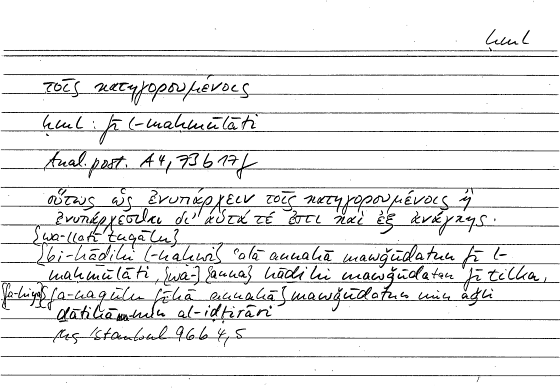 ḥml
τοῖς κατηγορουμένοις
ḥml : fī l-maḥmūlāti
Anal. post. A 4, 73 b 17 f
οὕτως ὡς ἐνυπάρχειν τοῖς κατηγορουμένοις ἢ
ἐνυπάρχεσθαι δι' αὑτά τέ ἐστι καὶ ἐξ ἀνάγκης.
{wa-llatī tuqālu}
{bi-hāḏihi l-ǧihati} ʿalā annahā mawǧūdatun fī l-
maḥmūlāti, {wa-} {anna} hāḏihi mawǧūdatun fī tilka,
{fa-hiya} {fa-naqūlu fīhā annahā} mawǧūdatun min aǧli
ḏātihā wa-min al-iḍṭirāri
Ms Istanbul 966 4,5